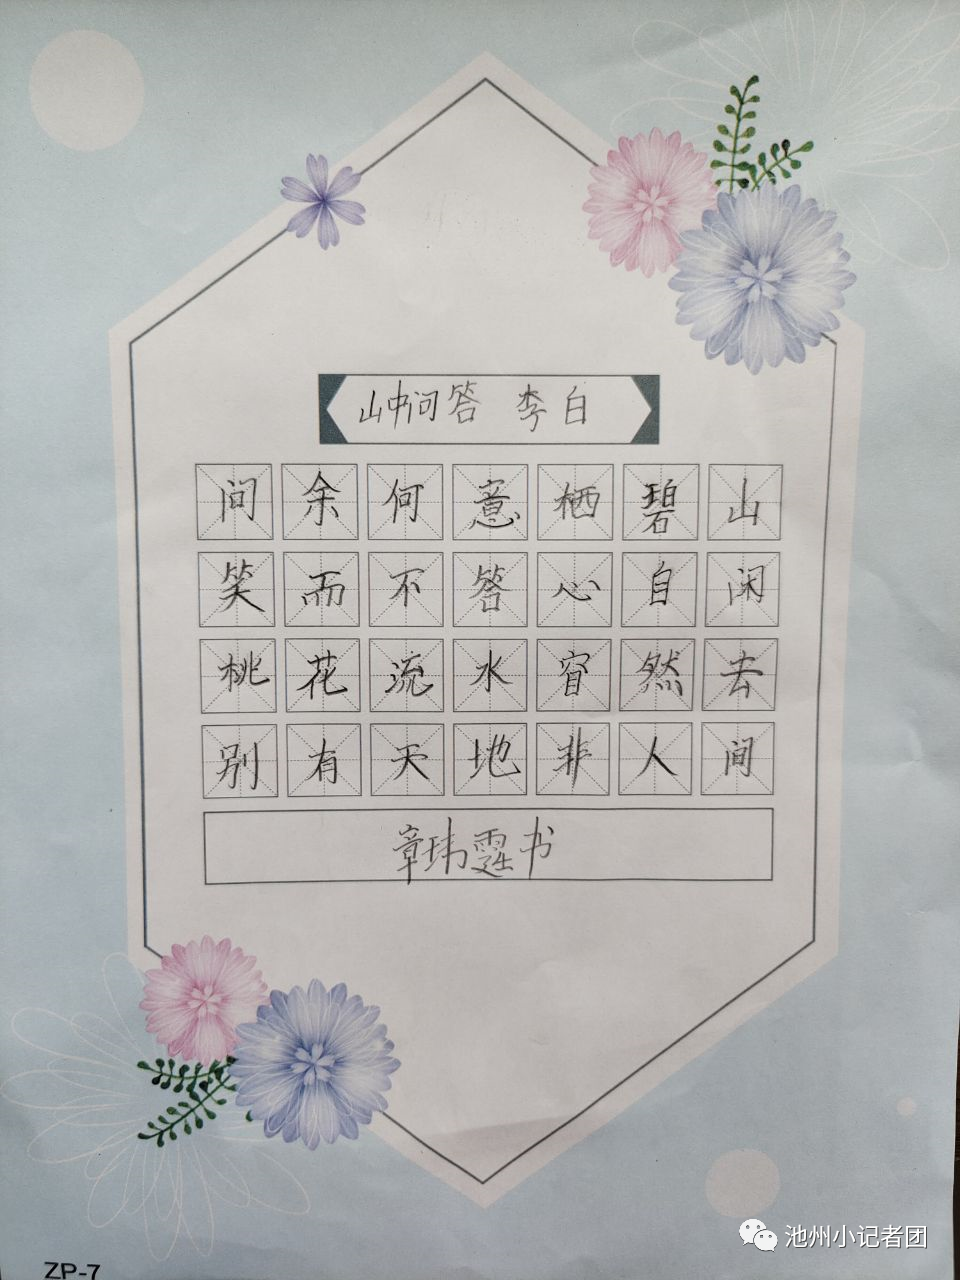 山中问答 李白
问余何意栖碧山
笑而不答心自闲
桃花流水窅然去
别有天地非人间
章玮霆书
池州小记者团
ZP-7